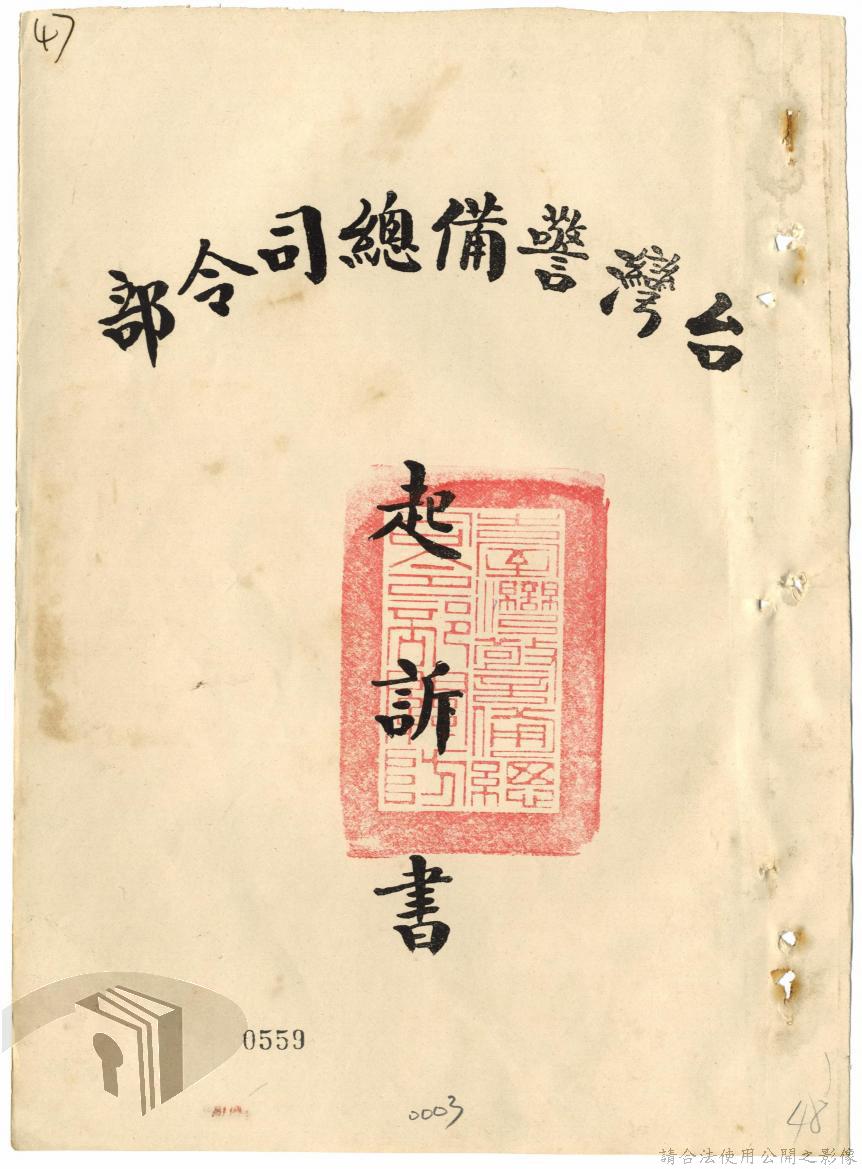 47
台灣警備總司令部
起訴書
臺灣警備總
司令部軍法
0559
0003
48
請合法使用公開之影像